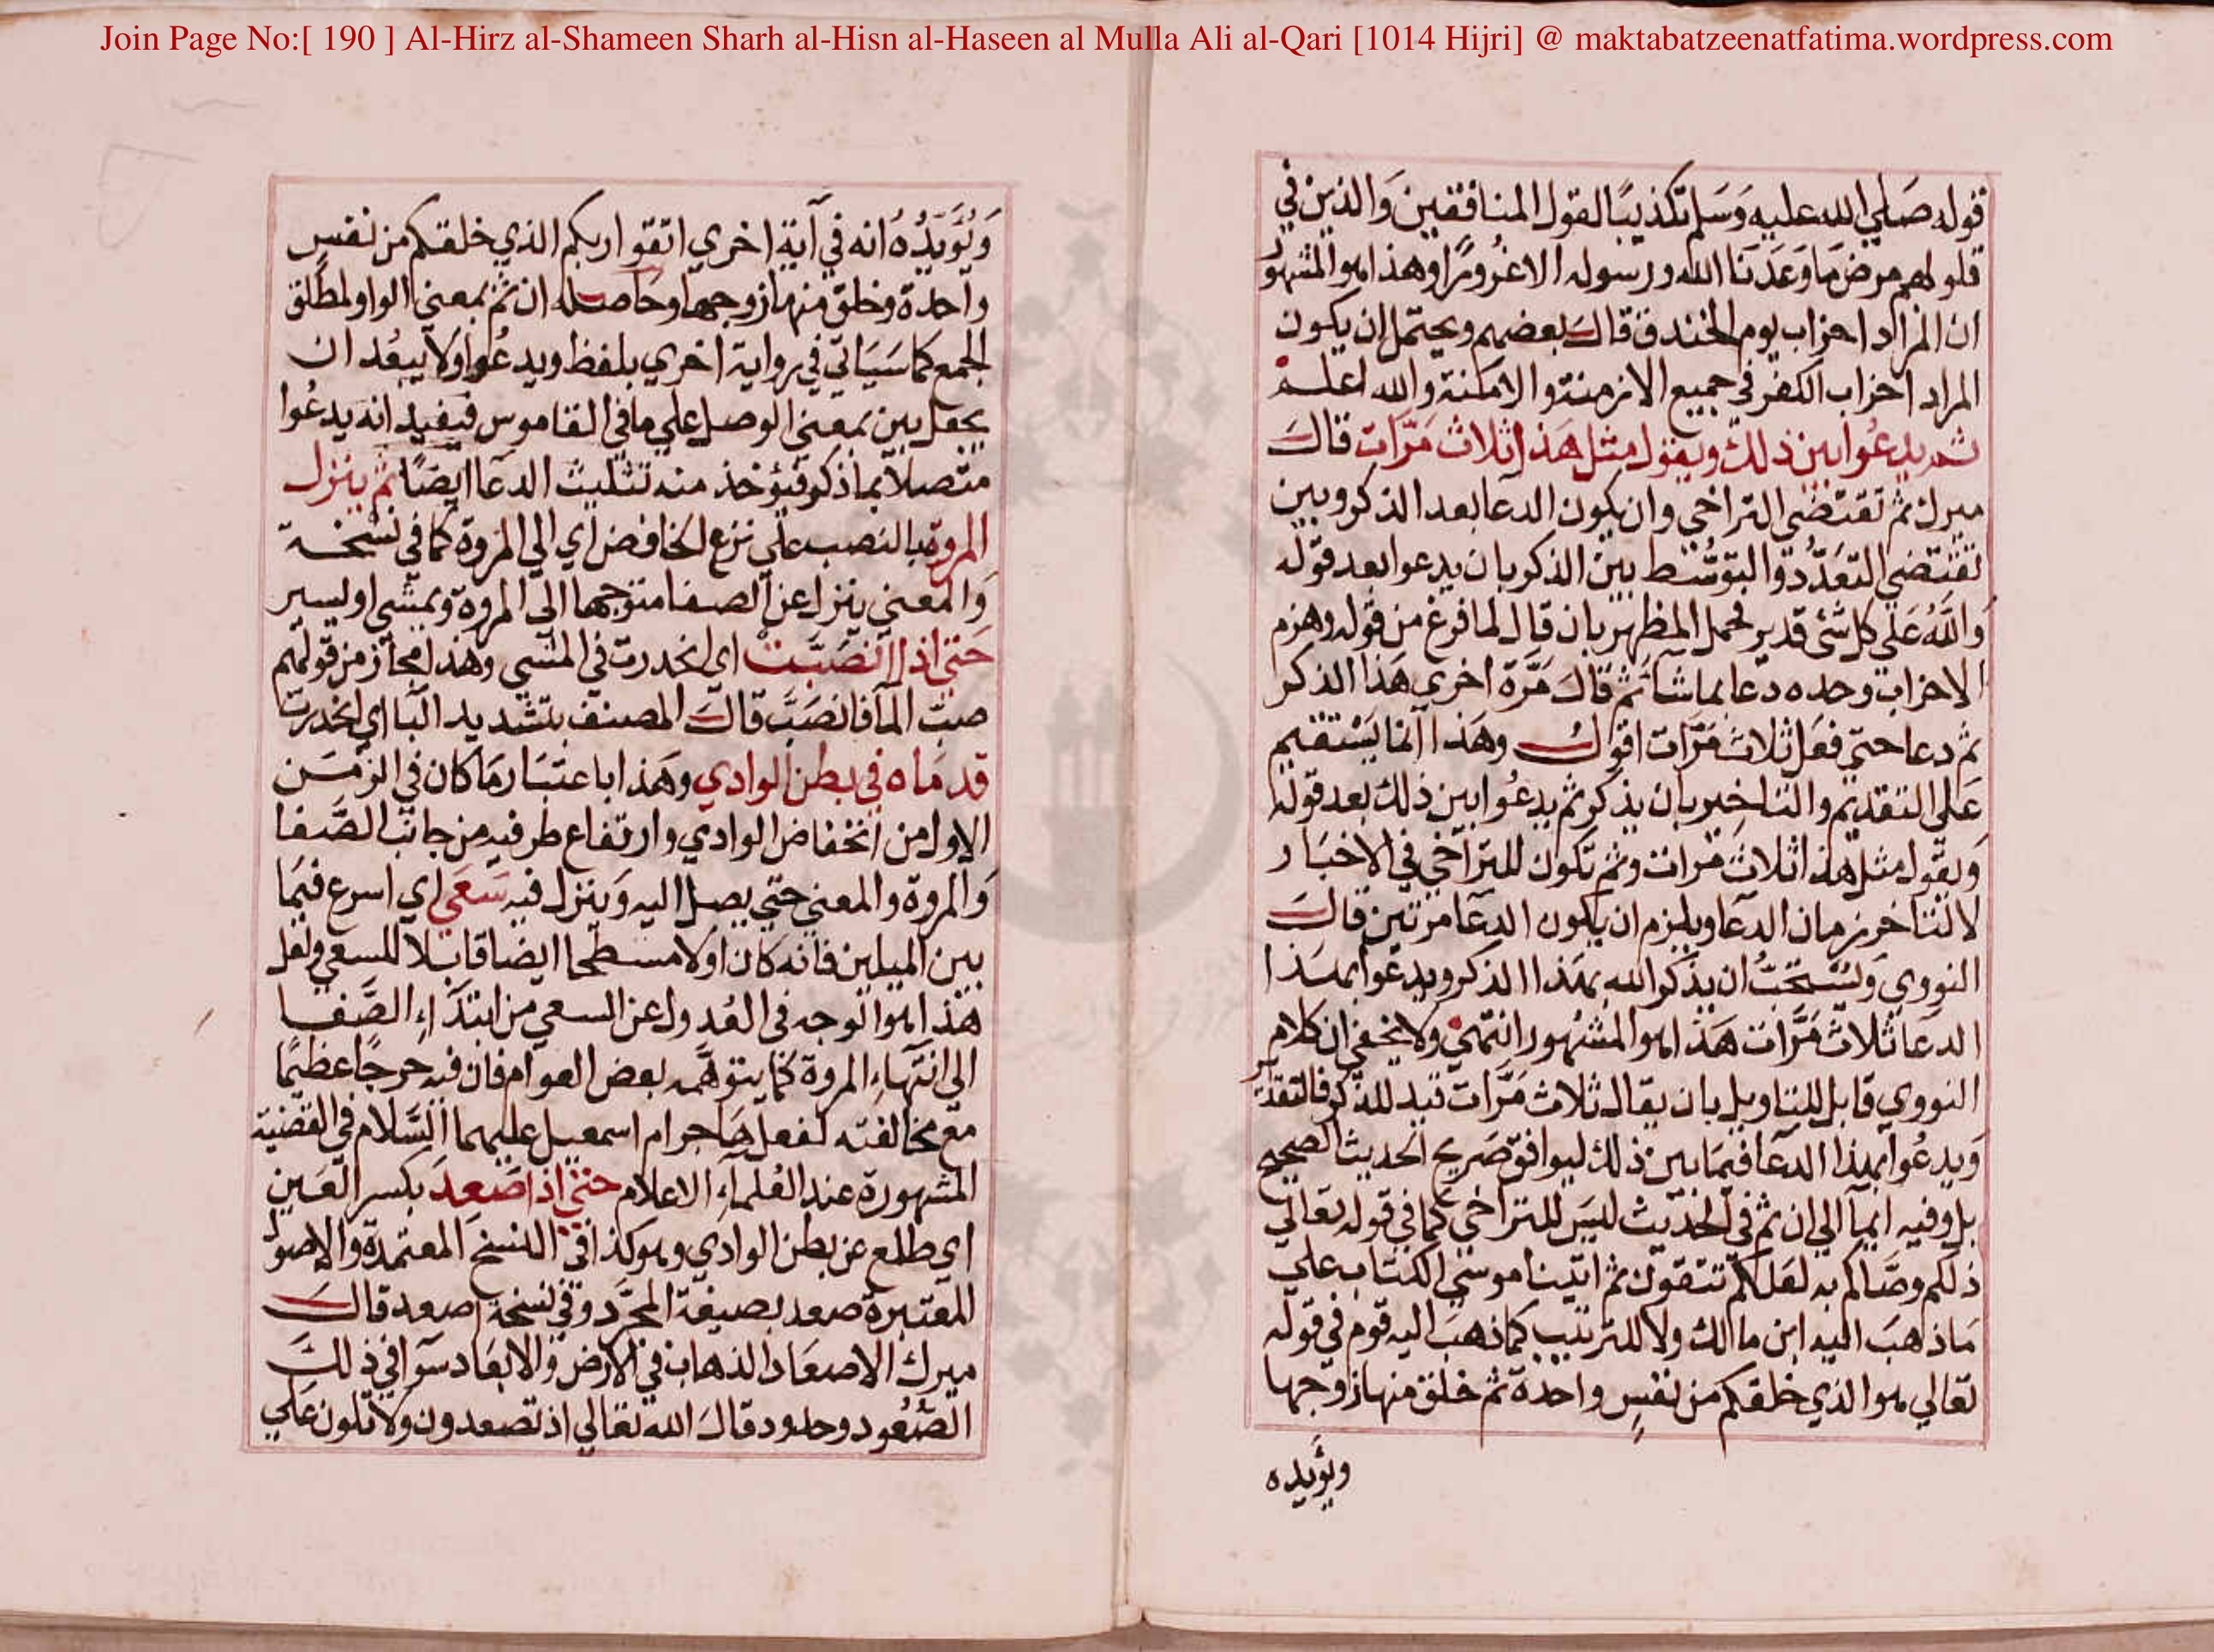 Join Page No:[ 190 ] Al-Hirz al-Shameen Sharh al-Hisn al-Haseen al Mulla Ali al-Qari [1014 Hijri] @ maktabatzeenatfatima.wordpress.com
قوله صَلي الله عليه وَسَلم تكذيبًا لقول المنافقين وَالذين في
قلوبهم مرض مَا وَعَدَنا الله ورسوله الا غرورًا وهذا هو المشهور
ان المراد احزاب يوم الخندق قال بعضهم ويحتمل ان يكون
المراد احزاب الكفر في جميع الازمنة والامكنة والله اعلم
ثم يدعُوا بين ذلك ويقول مثل هَذا ثلاث مَرّات قال
ميرك ثم تقتضي التراخي وان يكون الدعا بعد الذكر وبين
تقتضي التعَدُّد والتوسّط بين الذكر بان يدعوا بعد قوله
وَاللهُ عَلي كل شئ قدير فحمل المظهر بان قال لما فرغ من قوله وهزم
الاحزاب وحده دعا بما شا ثم قال مَرّة اخري هَذا الذكر
ثم دعا حتي فعَل ثلاث مَرّات اقول وهَذا انما يَسْتقيم
عَلي التقديم والتاخير بان يذكر ثم يدعُوا بين ذلك بعد قوله
وَيقول مثل هذا ثلاث مَرات وثم تكون للتراخي في الاخبَار
لا لتاخر زمان الدعَا ويلزم ان يكون الدعَا مرتين قال
النووي وَيُسْتَحَبُّ ان يذكر الله بهَذا الذكر ويدعُوا بهَذا
الدعَا ثلاث مَرَّات هَذا هو المشهور انتهي ولا يخفي ان كلام
النووي قابل للتاويل بان يقال ثلاث مَرَّات قيد للذكر فالتقدير
وَيدعُوا بهذا الدعَا فيمَا بين ذلك ليوافق صَريح الحديث الصحيح
بل وفيه ايماَ الي ان ثم في الحديث ليسَ للتراخي كما في قوله تعَالي
ذلكم وصَّاكم به لعَلكم تتقون ثم اتينا موسَي الكتاب علي
مَا ذهبَ اليه ابن مالك ولا للترتيب كما ذهبَ اليه قوم في قوله
تعَالي هو الذي خلقكم من نفسٍ واحدة ثم خلق منها زوجها
ويؤيده
وَيُؤيّدُهُ انه في آية اخري اتقوا ربكم الذي خلقكم من نفسٍ
واحدة وخلق منها زوجها وحَاصله ان ثم بمعني الواو لمطلق
الجمع كما سَيَاتي في رواية اخري بلفظ ويدعُوا ولا يبعُد ان
يجعل بين بمعني الوصل علي ما في القاموس فيفيد انه يدعُوا
متصلا بما ذكر فيؤخذ منه تثليث الدعَا ايضًا ثم ينزل
المروة بالنصب علي نزع الخافض اي الي المروة كما في نسخة
وَالمعني ينزل عن الصفا متوجها الي المروة ويمشي او يسير
حَتي اذا انصَبَّتْ اي انحدرت في المشي وهذا مجاز من قولهم
صبّ الماَ فانصَبَّ قال المصنف بتشديد البا اي انحدرت
قدمَاه في بطن الوادي وهَذا باعتبَار مَا كان في الزمَن
الاول من انخفاض الوادي وارتفاع طرفيه من جانب الصَّفا
وَالمروة والمعني حتي يصل اليه وَينزل فيه سَعَي اي اسرع فيمَا
بين الميلين فانه كان اولا مسطحا ايضا قابلا للسعي ولعل
هَذا هو الوجه في العُدول عن السعي من ابتدَاءِ الصَّفا
الي انتهَاءِ المروة كما يتوهَّمه بعض العوام فان فيه حرجًا عظيمًا
مع مخالفته لفعل هَاجر ام اسمعيل عليهما السَّلام في القضية
المشهورة عند العُلماءِ الاعلام حَتي اذا صَعدَ بكسر العَين
اي طلع عن بطن الوادي وهو كذا في النسخ المعتمدة والاصول
المعتبرة صعد بصيغة المجَرَّد وفي نسخة اصعد قال
ميرك الاصعَاد الذهاب في الارض والابعَاد سَوَا في ذلك
الصُّعُود وحدود قال الله تعَالي اذ تصعدون ولا تلون عَلي